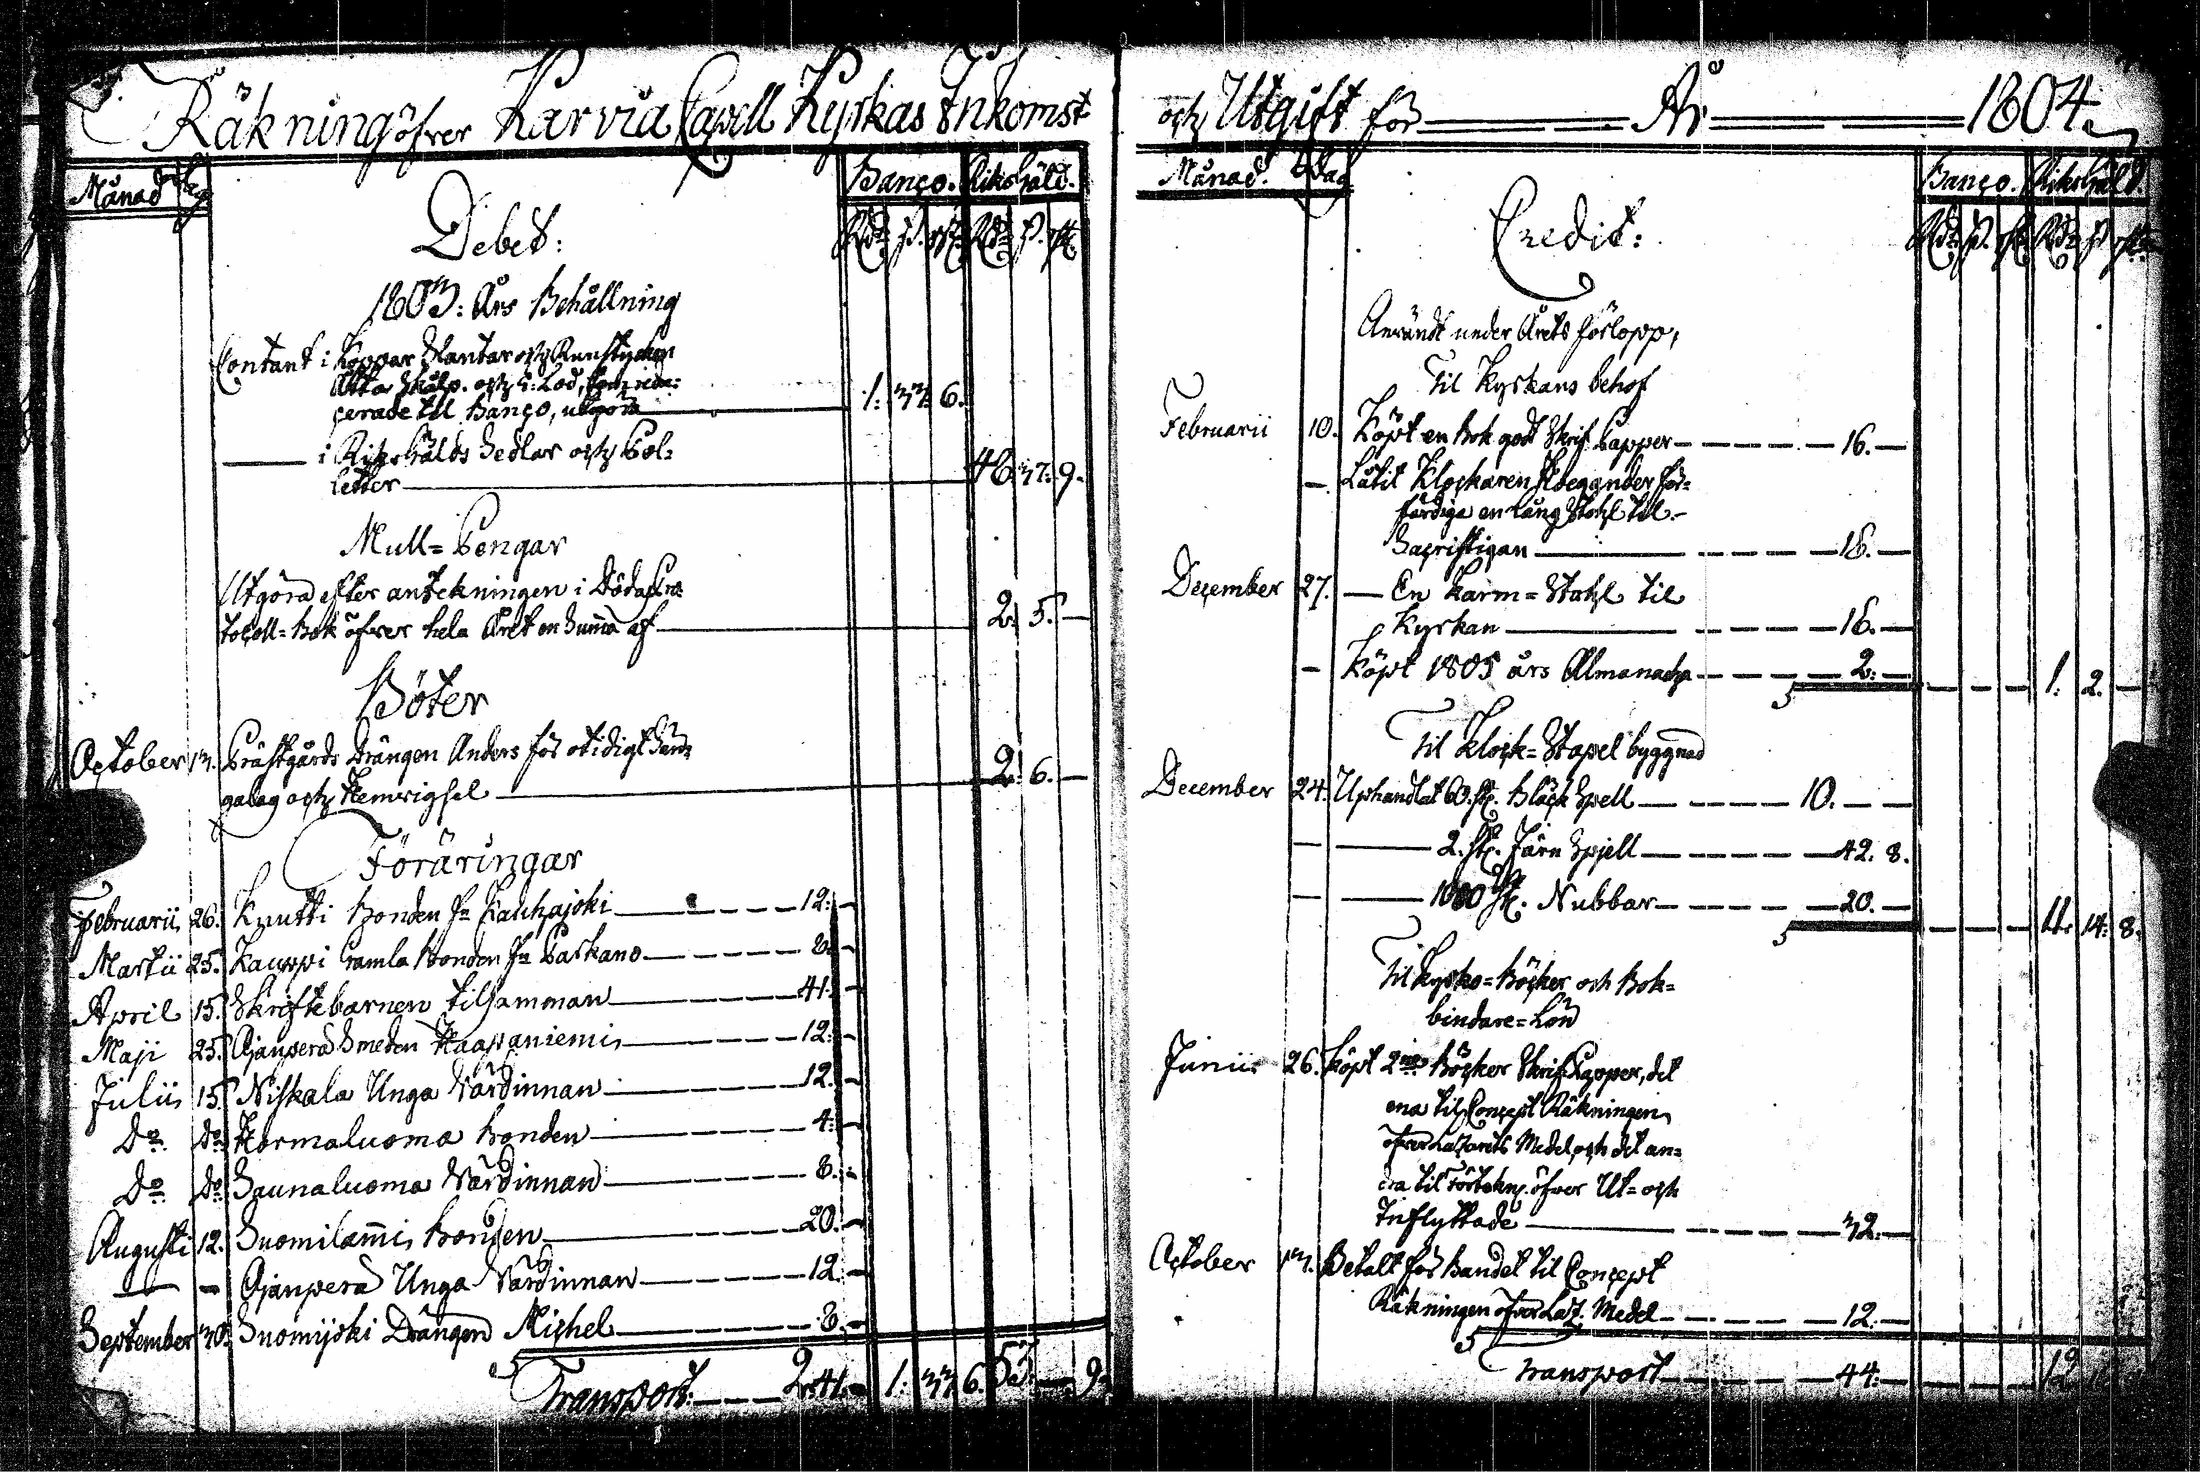 Räkning öfver Karvia Capell Kyrkas Inkomst
Månad Dag
Banco. Riksgäld.
Debet:
Rdr ß. rst. Rdr ß. rst.
1803: Års Behållning
Contant i Koppar Slantar och Runstycken
Åtta Skålp. och 4: Lod, som redu:
cerade til Banco, utgöra 1. 33. 6.
i Riksgälds Sedlar och Pol:
letter 48. 37. 9.
Mull=Pengar
Utgöra efter antekningen i Döda Pro
tocoll=Bok öfver hela Året en Summa af 2. 5. —
Böter
October 13. Prästgårds Drängen Anders för otidigt
galag och Hemvigsel 2. 6. —
Föräringar
Februarii 26. Knutti Bonden fr. Kauhajoki 12. —
Martii 25. Kauppi Gamla Bonden fr. Parkano 8. —
April 15. Skriftebarnen tilsamman 41. —
Maji 25. Ojanperä Smeden Haapaniemi 12. —
Julii 15. Niskala Unga Värdinnan 12. —
Do. Do. Hormaluoma bonden 4. —
Do. Do. Saunaluoma Värdinnan 8. —
Augusti 12. Suomilammi bonden 20. —
— — Ojanperä Unga Värdinnan 12. —
September 30. Suomijoki Drängen Michel 8. —
Transport. 2. 41. — 1. 33. 6. 53. — 9.
och Utgift för År 1804.
Månad. Dag.
Banco. Riksgäld.
Credit:
Rdr ß. rst. Rdr ß. rst.
Användt under Årets förlopp,
Til Kyrkans behof
Februarii 10. Köpt en Bok godt Skrif Papper 16. —
— Låtit Klockaren Heggander för=
färdiga en Lång Stohl til
Sacristigan 16. —
December 27. — En Karm=Stohl til
Kyrkan 16. —
— Köpt 1805 års Almanacha 2. — 1. 2. —
Til Klock=Stapel byggnad
December 24. Uphandlat 60. st. Bläck Spell 10. — —
— 2. st. Järn Spjell 42. 8.
— 1000 st. Nubbar 20. — 11. 14. 8.
Til Kyrko=Böcker och Bok=
bindare=Lön
Junii 26. Köpt 2ne Böcker Skrif Papper, det
ena til Concept Räkningen
öfver Lazarets Medel och det an=
dra til Förtekn. öfver Ut= och
Inflyttade 32. —
October 13. Betalt för Bandet til Concept
Räkningen öfver Laz. Medel 12. —
Transport 44. — 12